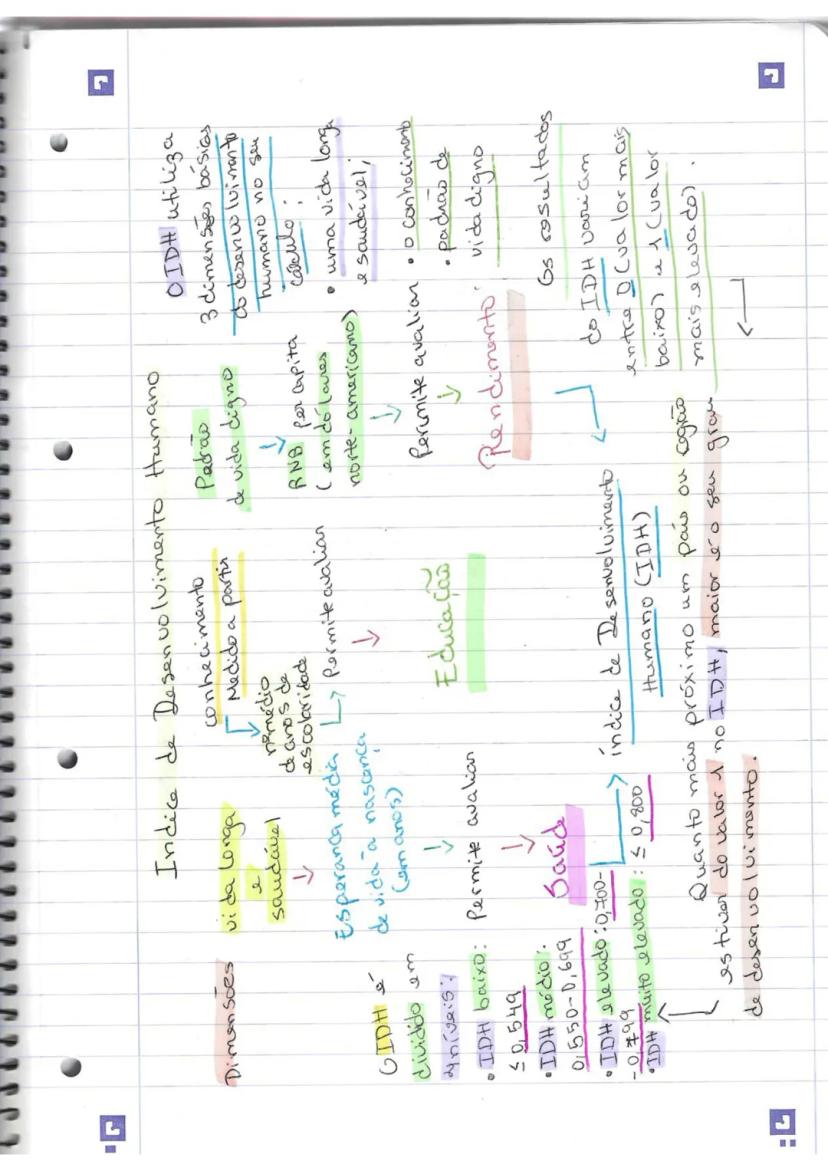 Indice de Desenvolvimento Humano
Dimensões
vida longa
e
saudável
Esperança média
de vida à nascença
(em anos)
Permite avaliar
Saúde
conhecimento
Medido a partir
de anos de
escolaridade
Permite avaliar
Educação
Padrão
de vida digno
RNB per capita
(em dólares
norte-americano)
Permite avaliar
Rendimento
O IDH utiliza
3 dimensões básicas
do desenvolvimento
humano no seu
cálculo:
• uma vida longa
e saudável;
• o conhecimento
• padrão de
vida digno
Os resultados
do IDH variam
entre 0 (valor mais
baixo) e 1 (valor
mais elevado).
O IDH é
dividido em
4 níveis:
• IDH baixo:
≤ 0,549
• IDH médio:
0,550-0,699
• IDH elevado: 0,700-
-0,799
• IDH muito elevado: ≤ 0,800
índice de Desenvolvimento
Humano (IDH)
Quanto mais próximo um país ou região
estiver do valor 1 no IDH, maior é o seu grau
de desenvolvimento.